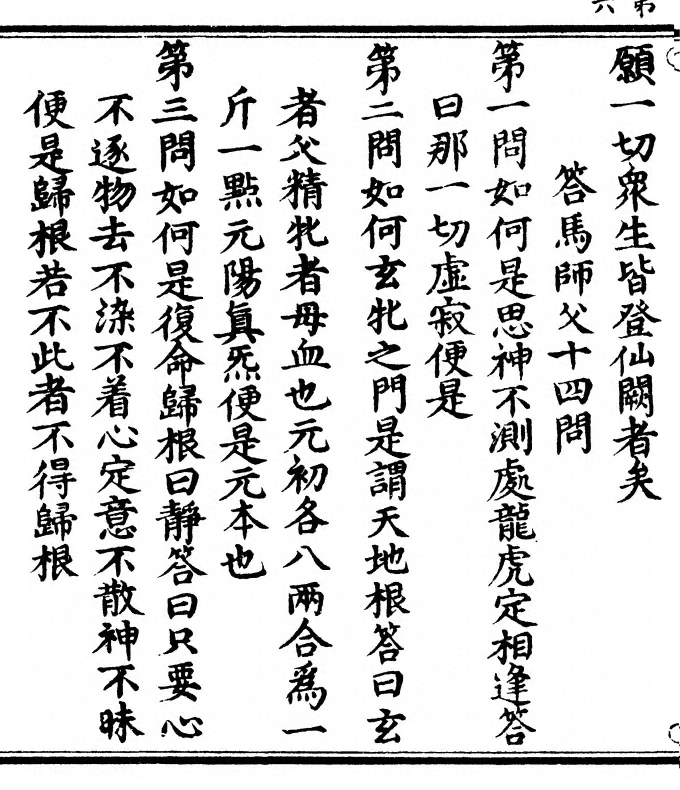 第六
願一切衆生皆登仙闕者矣
答馬師父十四問
第一問如何是思神不測處龍虎定相逢答
曰那一切虛寂便是
第二問如何玄牝之門是謂天地根答曰玄
者父精牝者母血也元初各八兩合爲一
斤一點元陽眞炁便是元本也
第三問如何是復命歸根曰靜答曰只要心
不逐物去不染不着心定意不散神不昧
便是歸根若不此者不得歸根